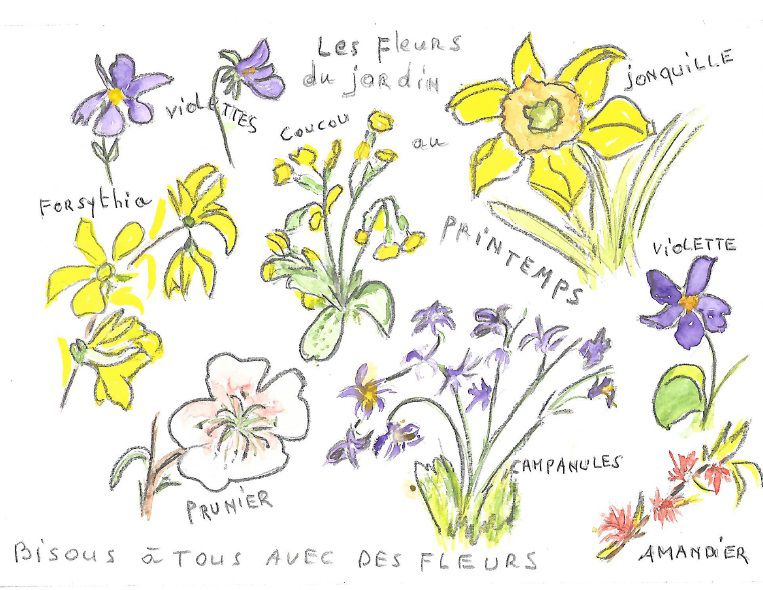 Les Fleurs
du jardin
au
PRINTEMPS
violETTES
COUCOU
jONQUILLE
Forsythia
VIOLETTE
CAMPANULES
PRUNIER
AMANDIER
BISOUS à TOUS AVEC DES FLEURS